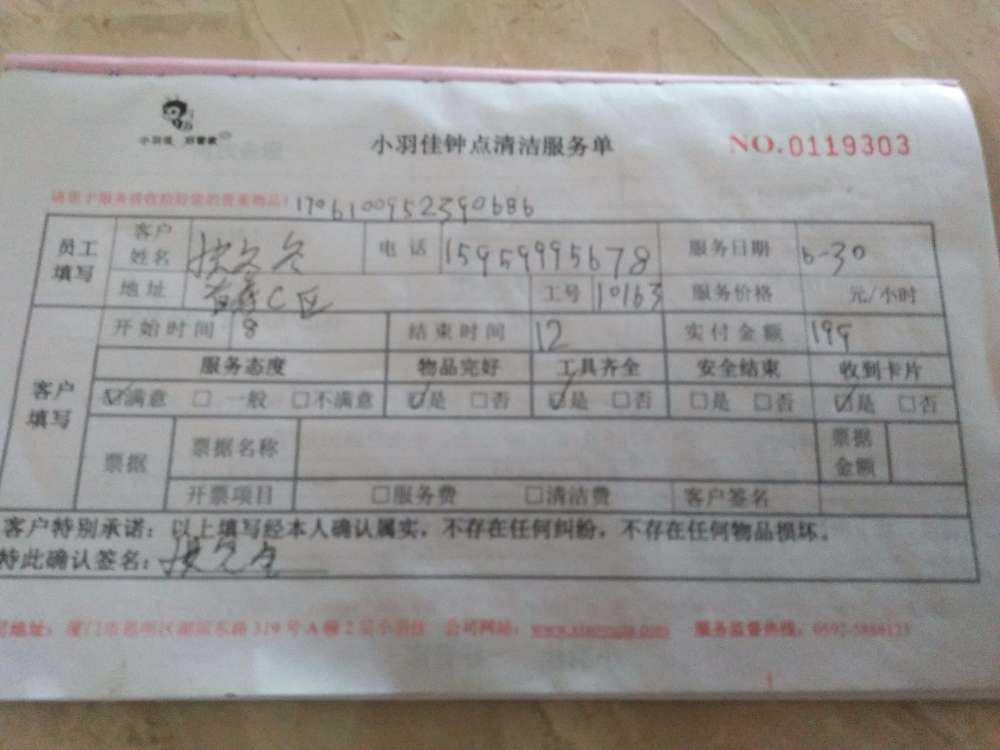 小羽佳 好管家
小羽佳钟点清洁服务单
NO.0119303
请您于服务前收拾好您的贵重物品! 1706100952390686
员工填写 客户姓名 电话 15959995678 服务日期 6-30
地址 C区 工号 10163 服务价格 元/小时
客户填写 开始时间 8 结束时间 12 实付金额 199
服务态度 物品完好 工具齐全 安全结束 收到卡片
☑满意 □一般 □不满意 ☑是 □否 ☑是 □否 □是 □否 ☑是 □否
票据 票据名称 票据金额
开票项目 □服务费 □清洁费 客户签名
客户特别承诺：以上填写经本人确认属实，不存在任何纠纷，不存在任何物品损坏。
特此确认签名：
地址：厦门市思明区湖滨东路319号A幢2层小羽佳 公司网站： 服务监督热线：